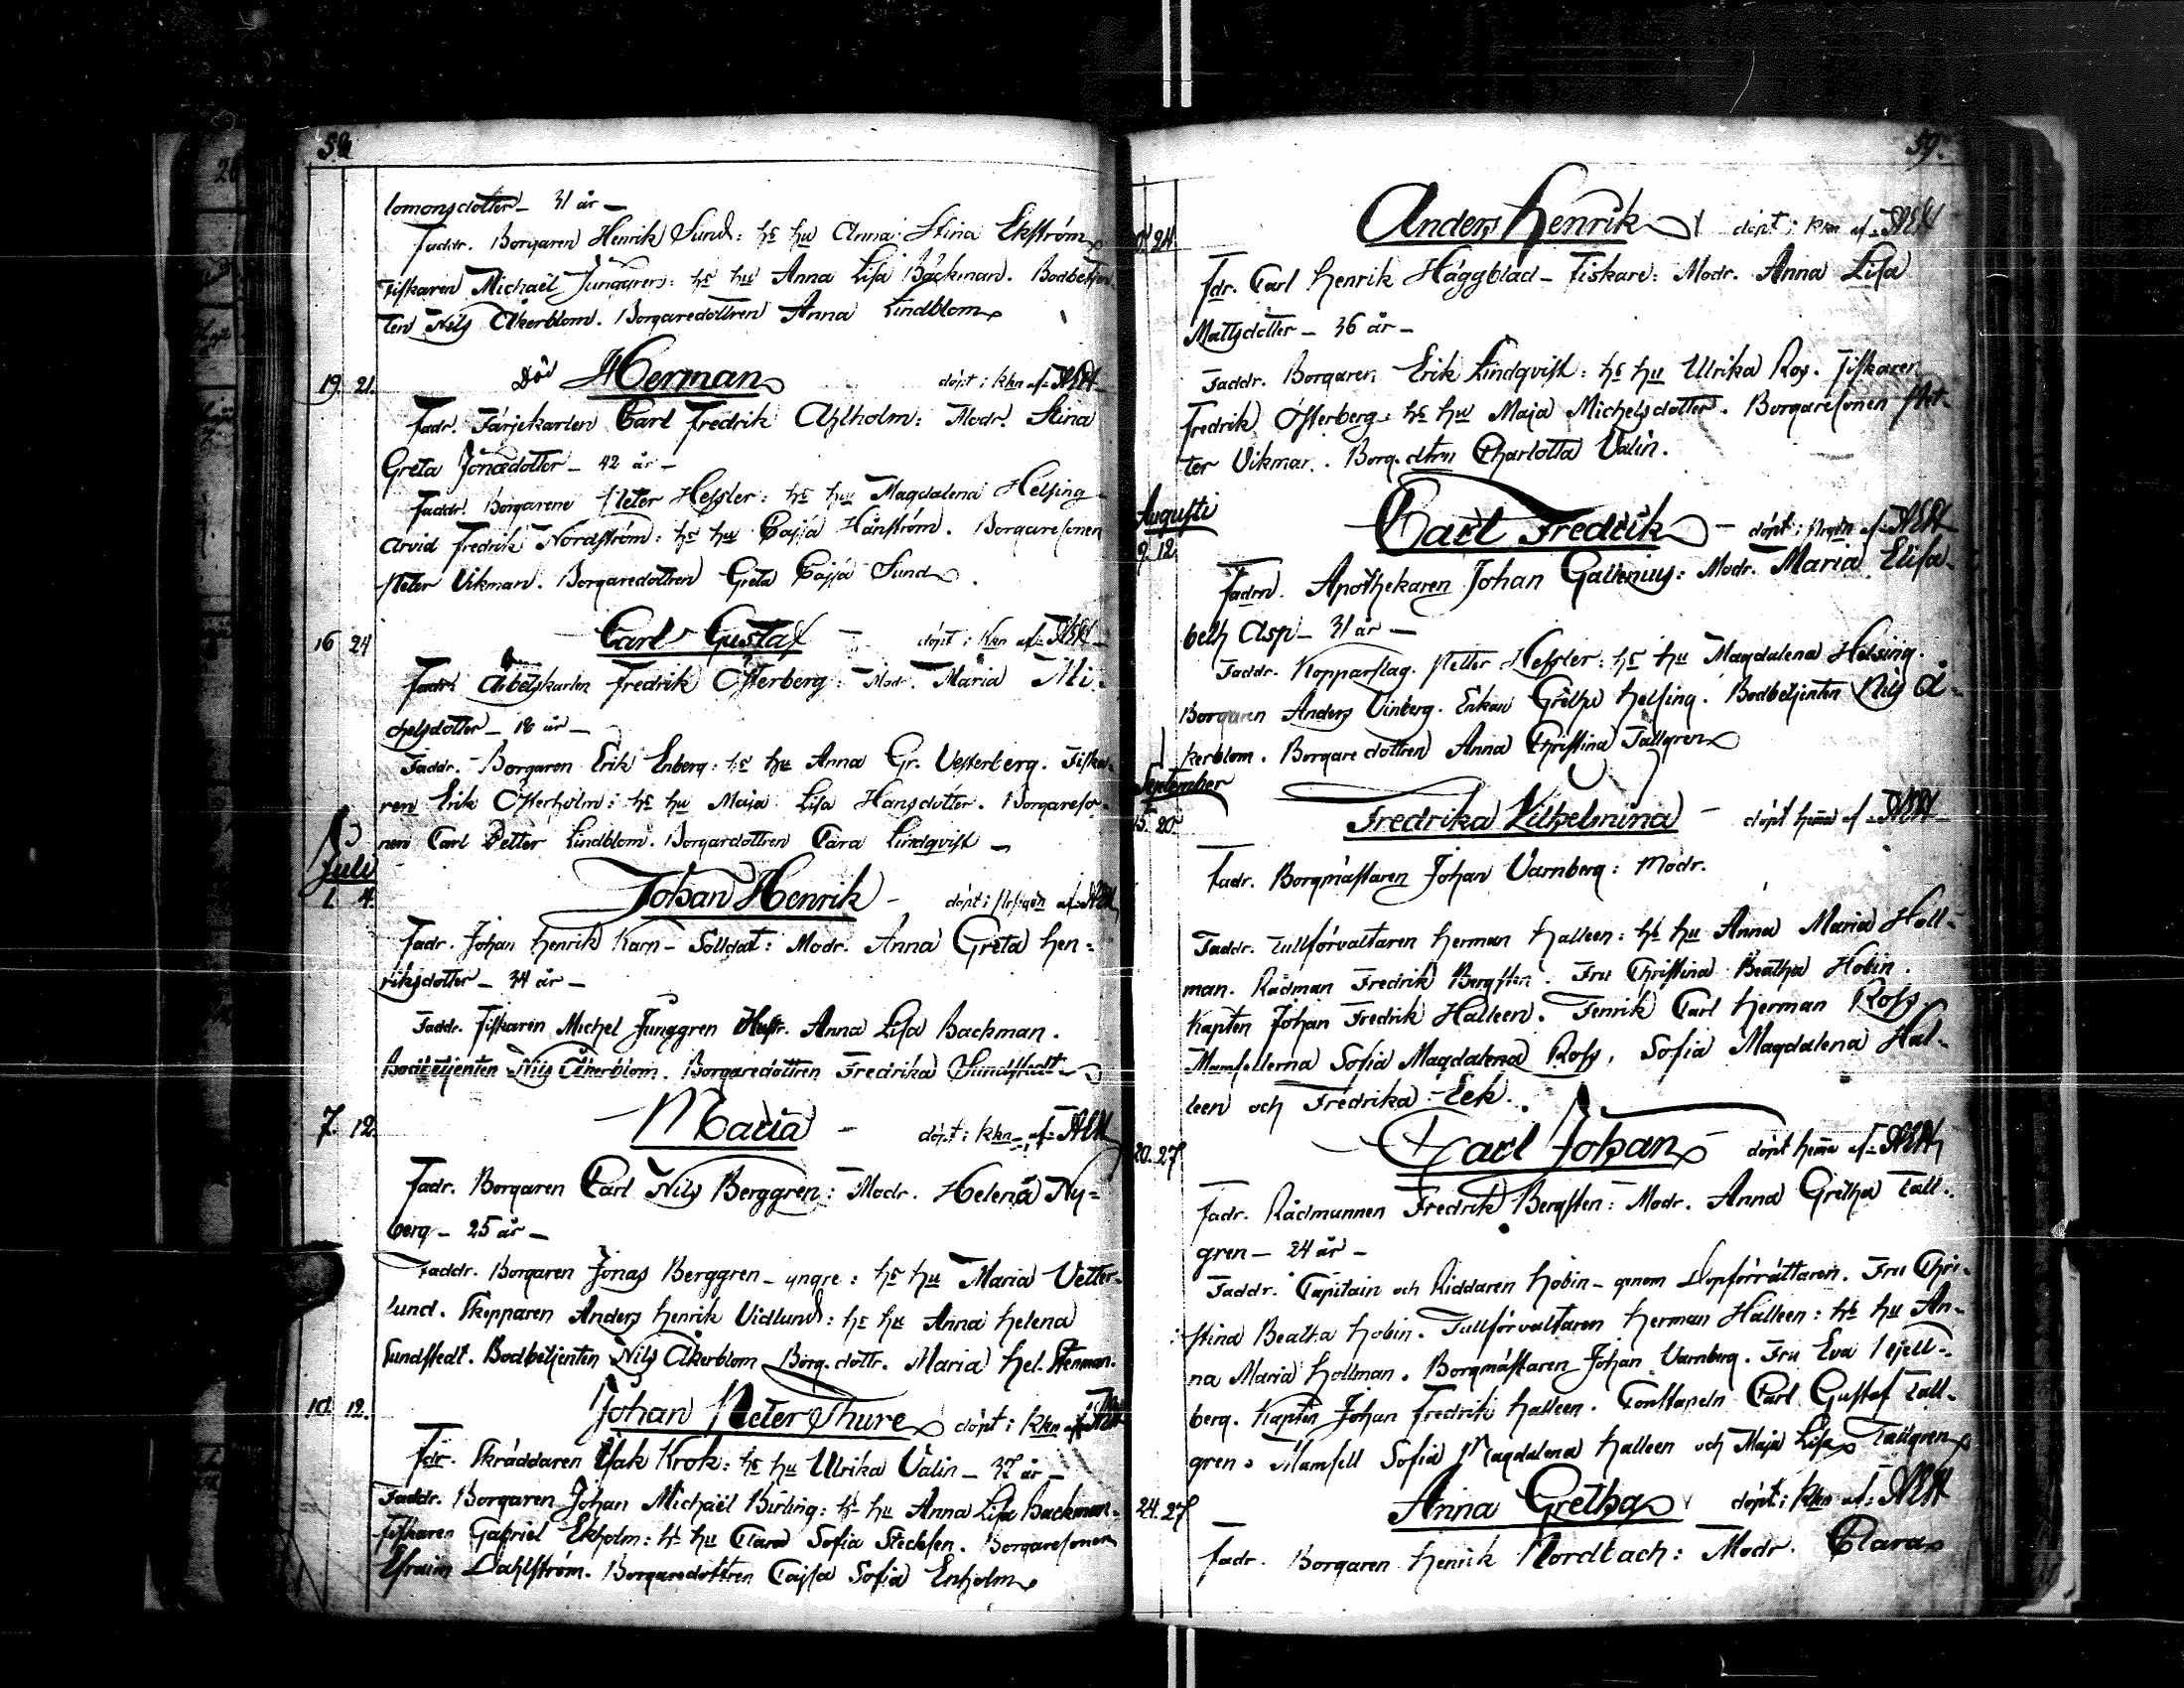 58
lomonsdotter – 31 år –
Faddr. Borgaren Henrik Sund: hs hu Anna Stina Ekström
Fiskaren Michaël Junggren: hs hu Anna Lisa Backman. Bodbetjen-
ten Nils Åkerblom. Borgaredottren Anna Lindblom
19. 21. Död Herman döpt i kkn af
Fadr. Färjekarlen Carl Fredrik Ahlholm: Modr. Stina
Greta Jonædotter – 42 år –
Faddr. Borgarene Peter Hessler: hs hu Magdalena Helsing
Arvid Fredrik Nordström: hs hu Cajsa Hånström. Borgaresonen
Peter Vikman. Borgaredottren Greta Cajsa Sund.
16 24 Carl Gustaf – döpt i kkn af
Fadr. Arbetskarlen Fredrik Österberg: Modr. Maria Mi-
chelsdotter – 18 år –
Faddr. Borgaren Erik Enberg: hs hu Anna Gr. Vesterberg. Fiska-
ren Erik Österholm: hs hu Maja Lisa Hansdotter. Borgareso-
nen Carl Petter Lindblom. Borgardottren Cara Lindqvist –
Julii
1. 4. Johan Henrik – döpt i af
Fadr. Johan Henrik Karp – Solldat: Modr. Anna Greta Hen-
riksdotter – 34 år –
Faddr. Fiskaren Michel Junggren Hustr. Anna Lisa Backman.
Bodbetjenten Nils Åkerblom. Borgaredottren Fredrika Sundstedt
7. 12. Maria – döpt i kkn af
Fadr. Borgaren Carl Nils Berggren: Modr. Helena Ny-
berg – 25 år –
Faddr. Borgaren Jonas Berggren – yngre: hs hu Maria Vetter-
lund. Skepparen Anders Henrik Vidlund: hs hu Anna Helena
Sundstedt. Bodbetjenten Nils Åkerblom Borg. dottr. Maria Hel. Stenman.
10. 12. Johan Peter Thure döpt i kkn af
Fdr. Skräddaren Isak Krok: hs hu Ulrika Valin – 37 år –
Faddr. Borgaren Johan Michaël Birling: hs hu Anna Lisa Backman.
Fiskaren Gabriel Ekholm: hs hu Clara Sofia Stecksen. Borgaresonen
Efraim Dahlström. Borgaredottren Cajsa Sofia Enholm
59.
24 Anders Henrik döpt i kkn af
Fdr. Carl Henrik Häggblad – Fiskare: Modr. Anna Lisa
Mattsdotter – 36 år –
Faddr. Borgaren Erik Lindqvist: hs hu Ulrika Roy. Fiskaren
Fredrik Österberg: hs hu Maja Michelsdotter. Borgaresonen Pet-
ter Vikman. Borg. dtrn Charlotta Valin.
Augusti
9. 12. Carl Fredrik – döpt i af
Fadrn. Apothekaren Johan Gallenius: Modr. Maria Elisa-
beth Asp – 31 år –
Faddr. Kopparslag. Petter Hessler: hs hu Magdalena Helsing.
Borgaren Anders Vinberg. Enkan Gretha Helsing. Bodbetjenten Nils Å-
kerblom. Borgaredottren Anna Christina Tallgren
September
15. 20. Fredrika Vilhelmina – döpt hema af
Fadr. Borgmästaren Johan Varnberg: Modr.
Faddr. Tullförvaltaren Herman Halleen: hs hu Anna Maria Holl-
man. Rådman Fredrik Bergsten. Fru Christina Beatha Hobin.
Kapten Johan Fredrik Halleen. Fenrik Carl Herman Ross.
Mamsellerna Sofia Magdalena Ross, Sofia Magdalena Hal-
leen och Fredrika Eek.
20. 27. Carl Johan – döpt hema af
Fadr. Rådmannen Fredrik Bergsten: Modr. Anna Gretha Tall-
gren – 24 år –
Faddr. Capitain och Riddaren Hobin – genom Dopförrättaren. Fru Chri-
stina Beatha Hobin. Tullförvaltaren Herman Halleen: hs hu An-
na Maria Hollman. Borgmästaren Johan Varnberg. Fru Eva Tejell-
berg. Kapten Johan Fredrik Halleen. Constapeln Carl Gustaf Tall-
gren. Mamsell Sofia Magdalena Halleen och Maja Lisa Tallgren
24. 27. Anna Gretha döpt i kkn af
Fadr. Borgaren Henrik Nordbach: Modr. Clara